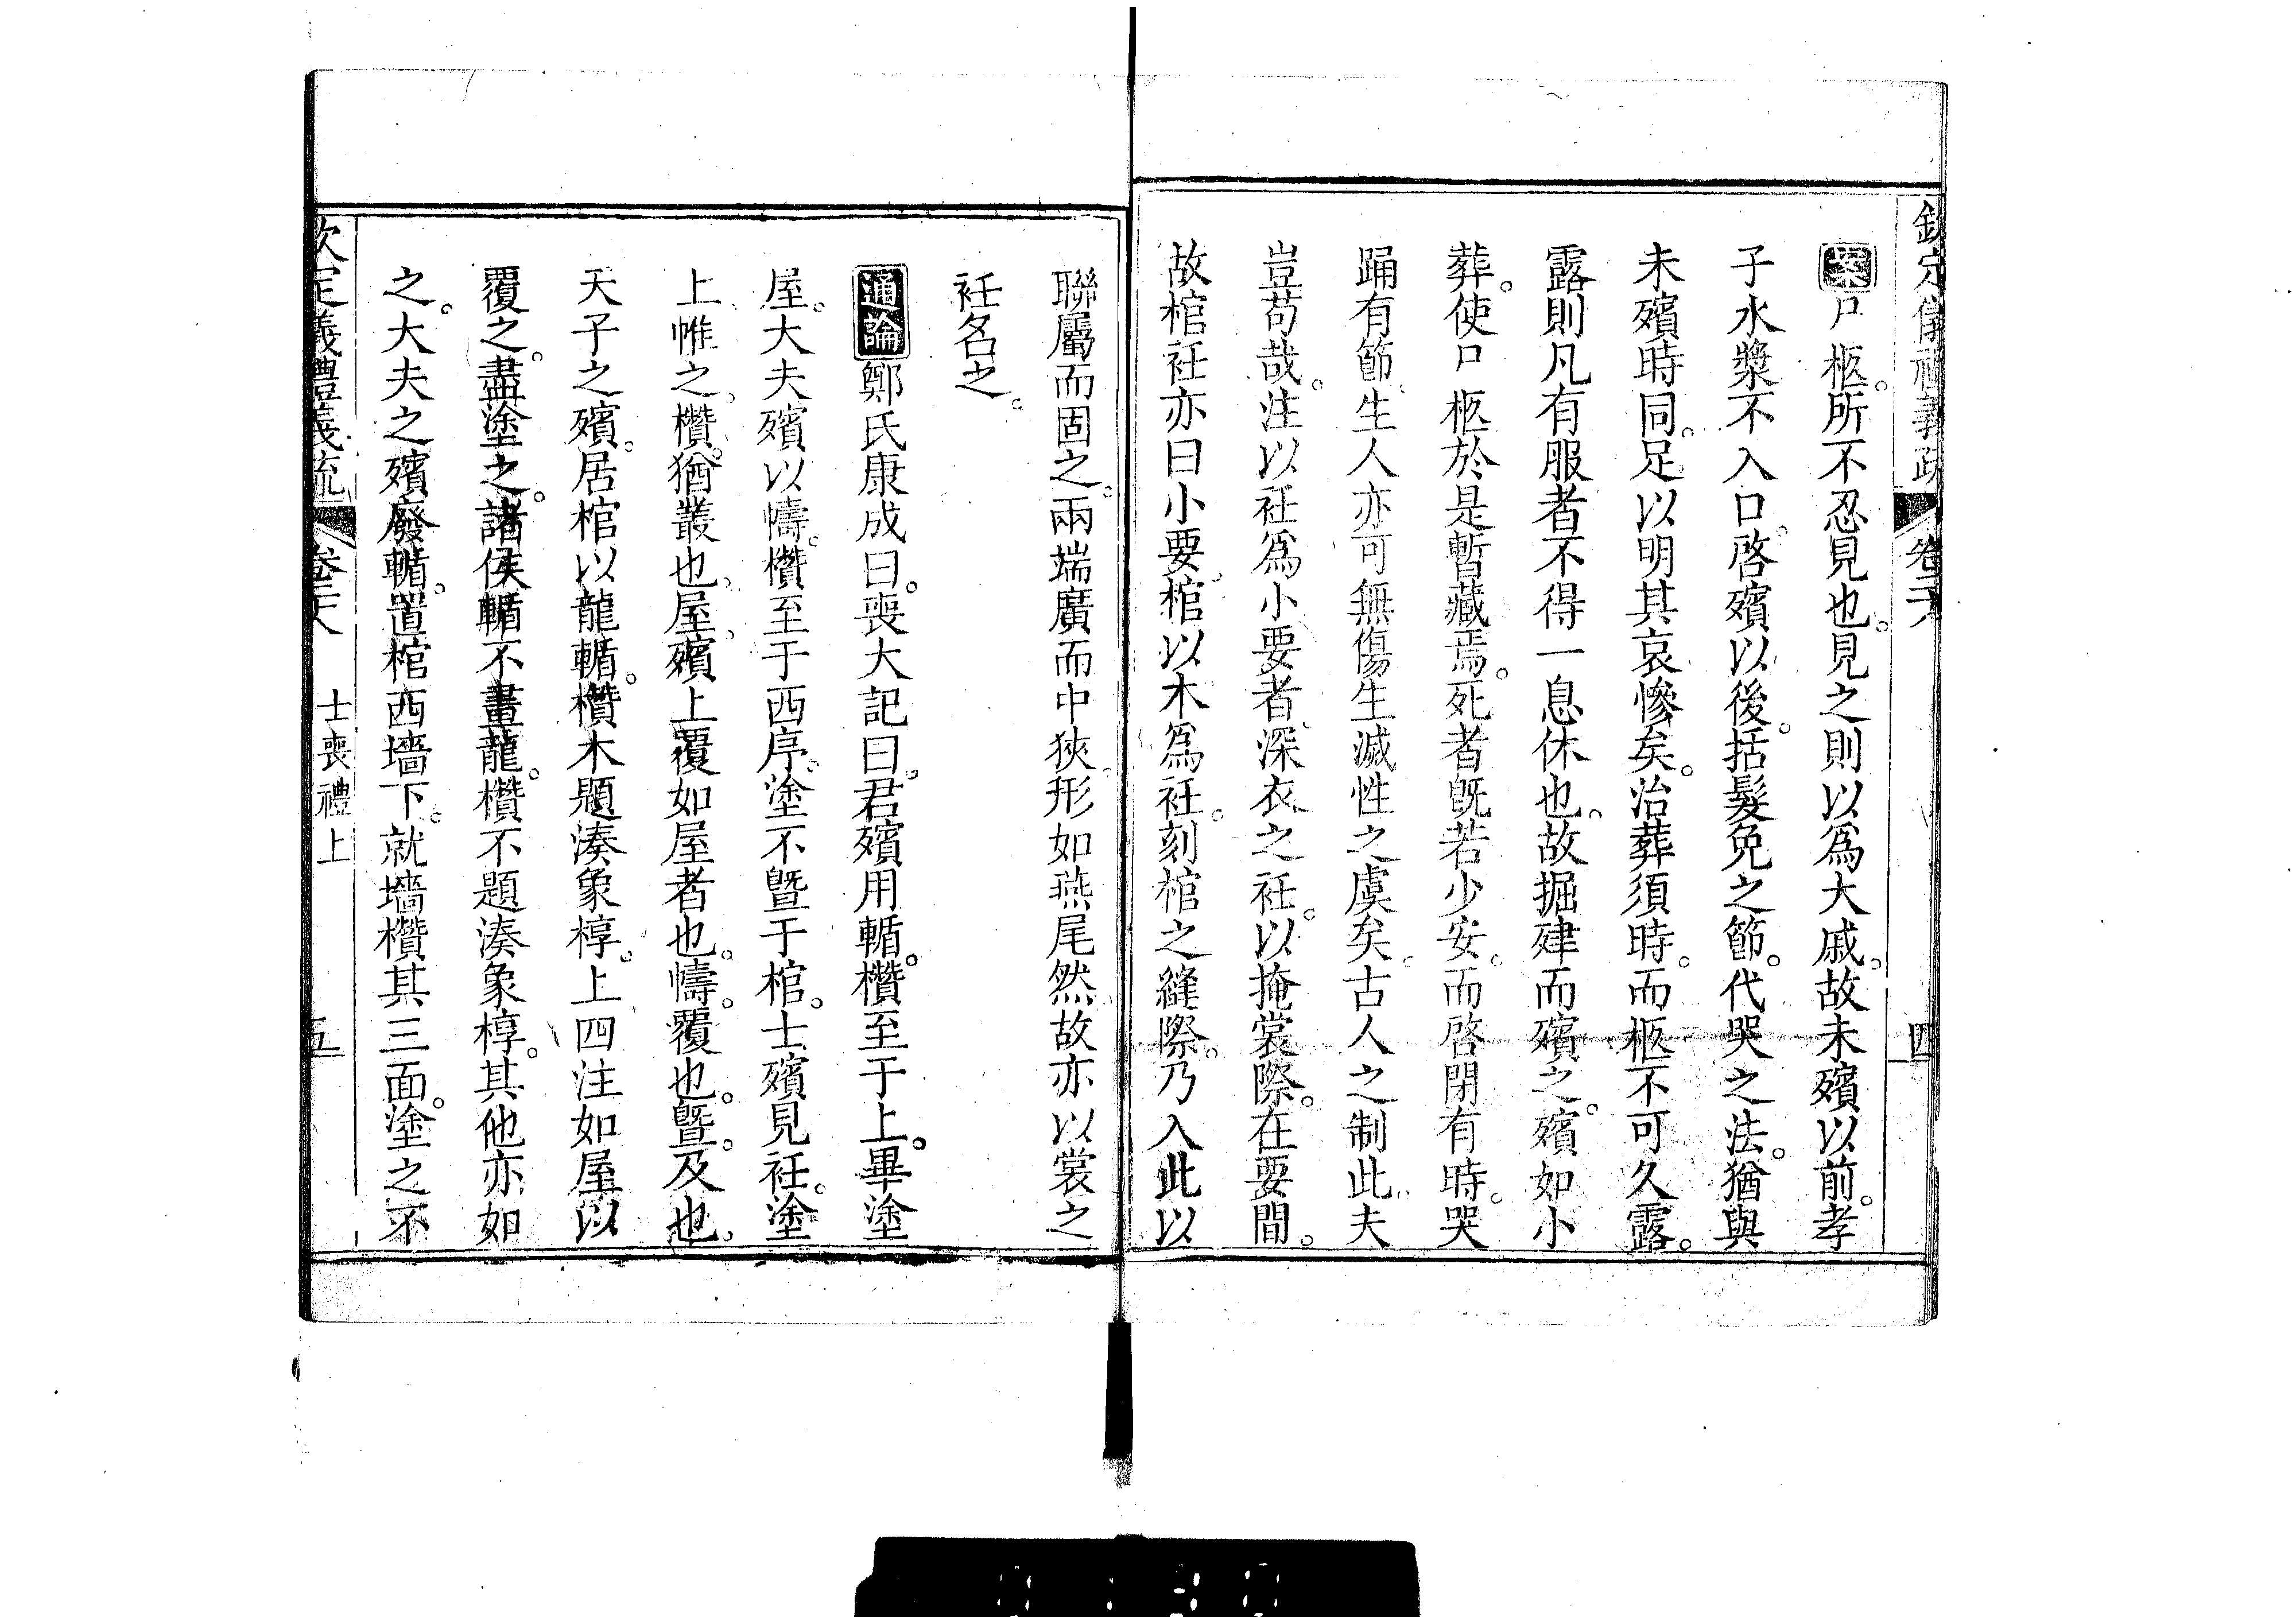 欽定儀禮義疏 卷二十八 四
案尸柩。所不忍見也。見之則以爲大戚。故未殯以前。孝
子水漿不入口。啓殯以後。括髮免之節。代哭之法。猶與
未殯時同。足以明其哀慘矣。治葬須時。而柩不可久露。
露則凡有服者不得一息休也。故掘肂而殯之。殯如小
葬。使尸柩於是暫藏焉。死者旣若少安。而啓閉有時。哭
踊有節。生人亦可無傷生滅性之虞矣。古人之制此。夫
豈苟哉。注以衽爲小要者。深衣之衽。以掩裳際。在要間。
故棺衽亦曰小要。棺以木爲衽。刻棺之縫際。乃入此以
聯屬而固之。兩端廣而中狹。形如燕尾然。故亦以裳之
衽名之。
通論鄭氏康成曰。喪大記曰。君殯用輴。欑至于上。畢塗
屋。大夫殯以幬。欑至于西序。塗不曁于棺。士殯見衽。塗
上帷之。欑。猶叢也。屋。殯上覆如屋者也。幬。覆也。曁。及也。
天子之殯。居棺以龍輴。欑木題湊象椁。上四注如屋以
覆之。盡塗之。諸侯輴不畫龍。欑不題湊象椁。其他亦如
之。大夫之殯廢輴。置棺西墻下。就墻欑其三面。塗之不
欽定義禮義疏 卷二十八 士喪禮上 五